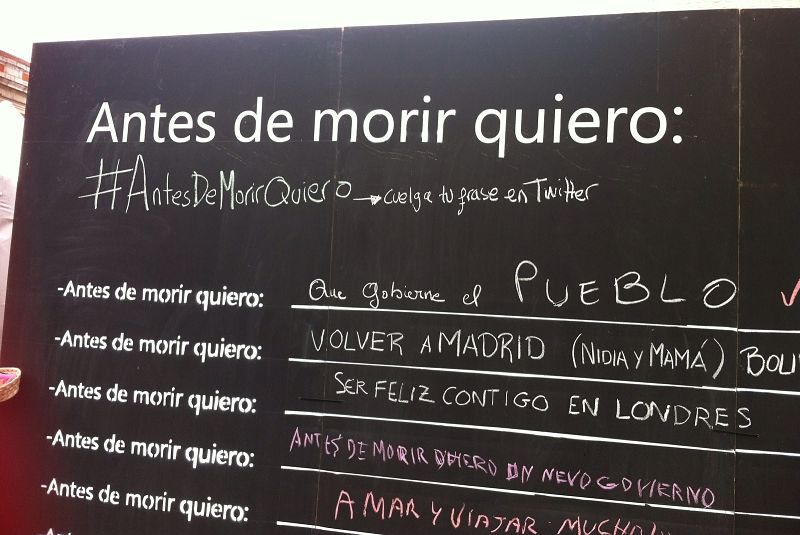 Antes de morir quiero:
#AntesDeMorirQuiero → cuelga tu frase en Twitter
-Antes de morir quiero: Que Gobierne el PUEBLO
-Antes de morir quiero: VOLVER A MADRID (NIDIA Y MAMÁ)
-Antes de morir quiero: SER FELIZ CONTIGO EN LONDRES
-Antes de morir quiero: ANTES DE MORIR QUIERO UN NEVO GOVIERNO
-Antes de morir quiero: A MAR Y VIAJAR MUCHO